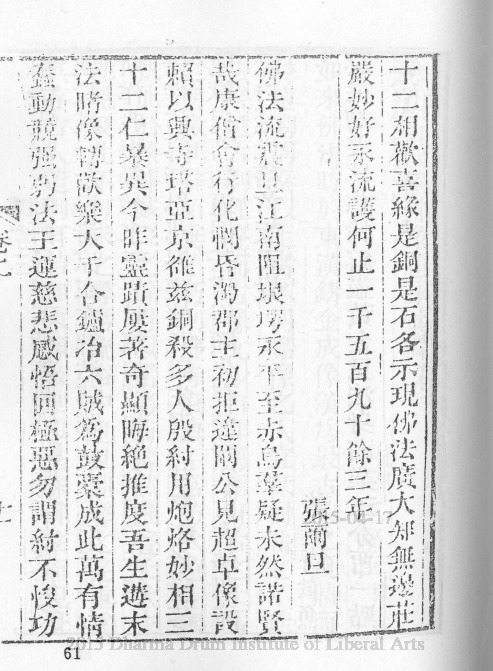 十二相歡喜緣是銅是石各示現佛法廣大知無邊莊
嚴妙好永流護何止一千五百九十餘三年
張爾旦
佛法流震旦江南阻垠堮永平至赤烏羣疑未然諾賢
哉康僧會行化憫昏濁郡主初拒違闞公見超卓像設
賴以興寺塔亞京雒茲銅殺多人殷紂用炮烙妙相三
十二仁暴異今昨靈蹟屢著奇顯晦絕推度吾生遘末
法睹像轉歡樂大千合鑪冶六賊為鼓橐成此萬有情
蠢動競强弱法王運慈悲感悟回極惡勿謂紂不悛功
卷上
61
2013 Dharma Drum Institute of Liberal Arts